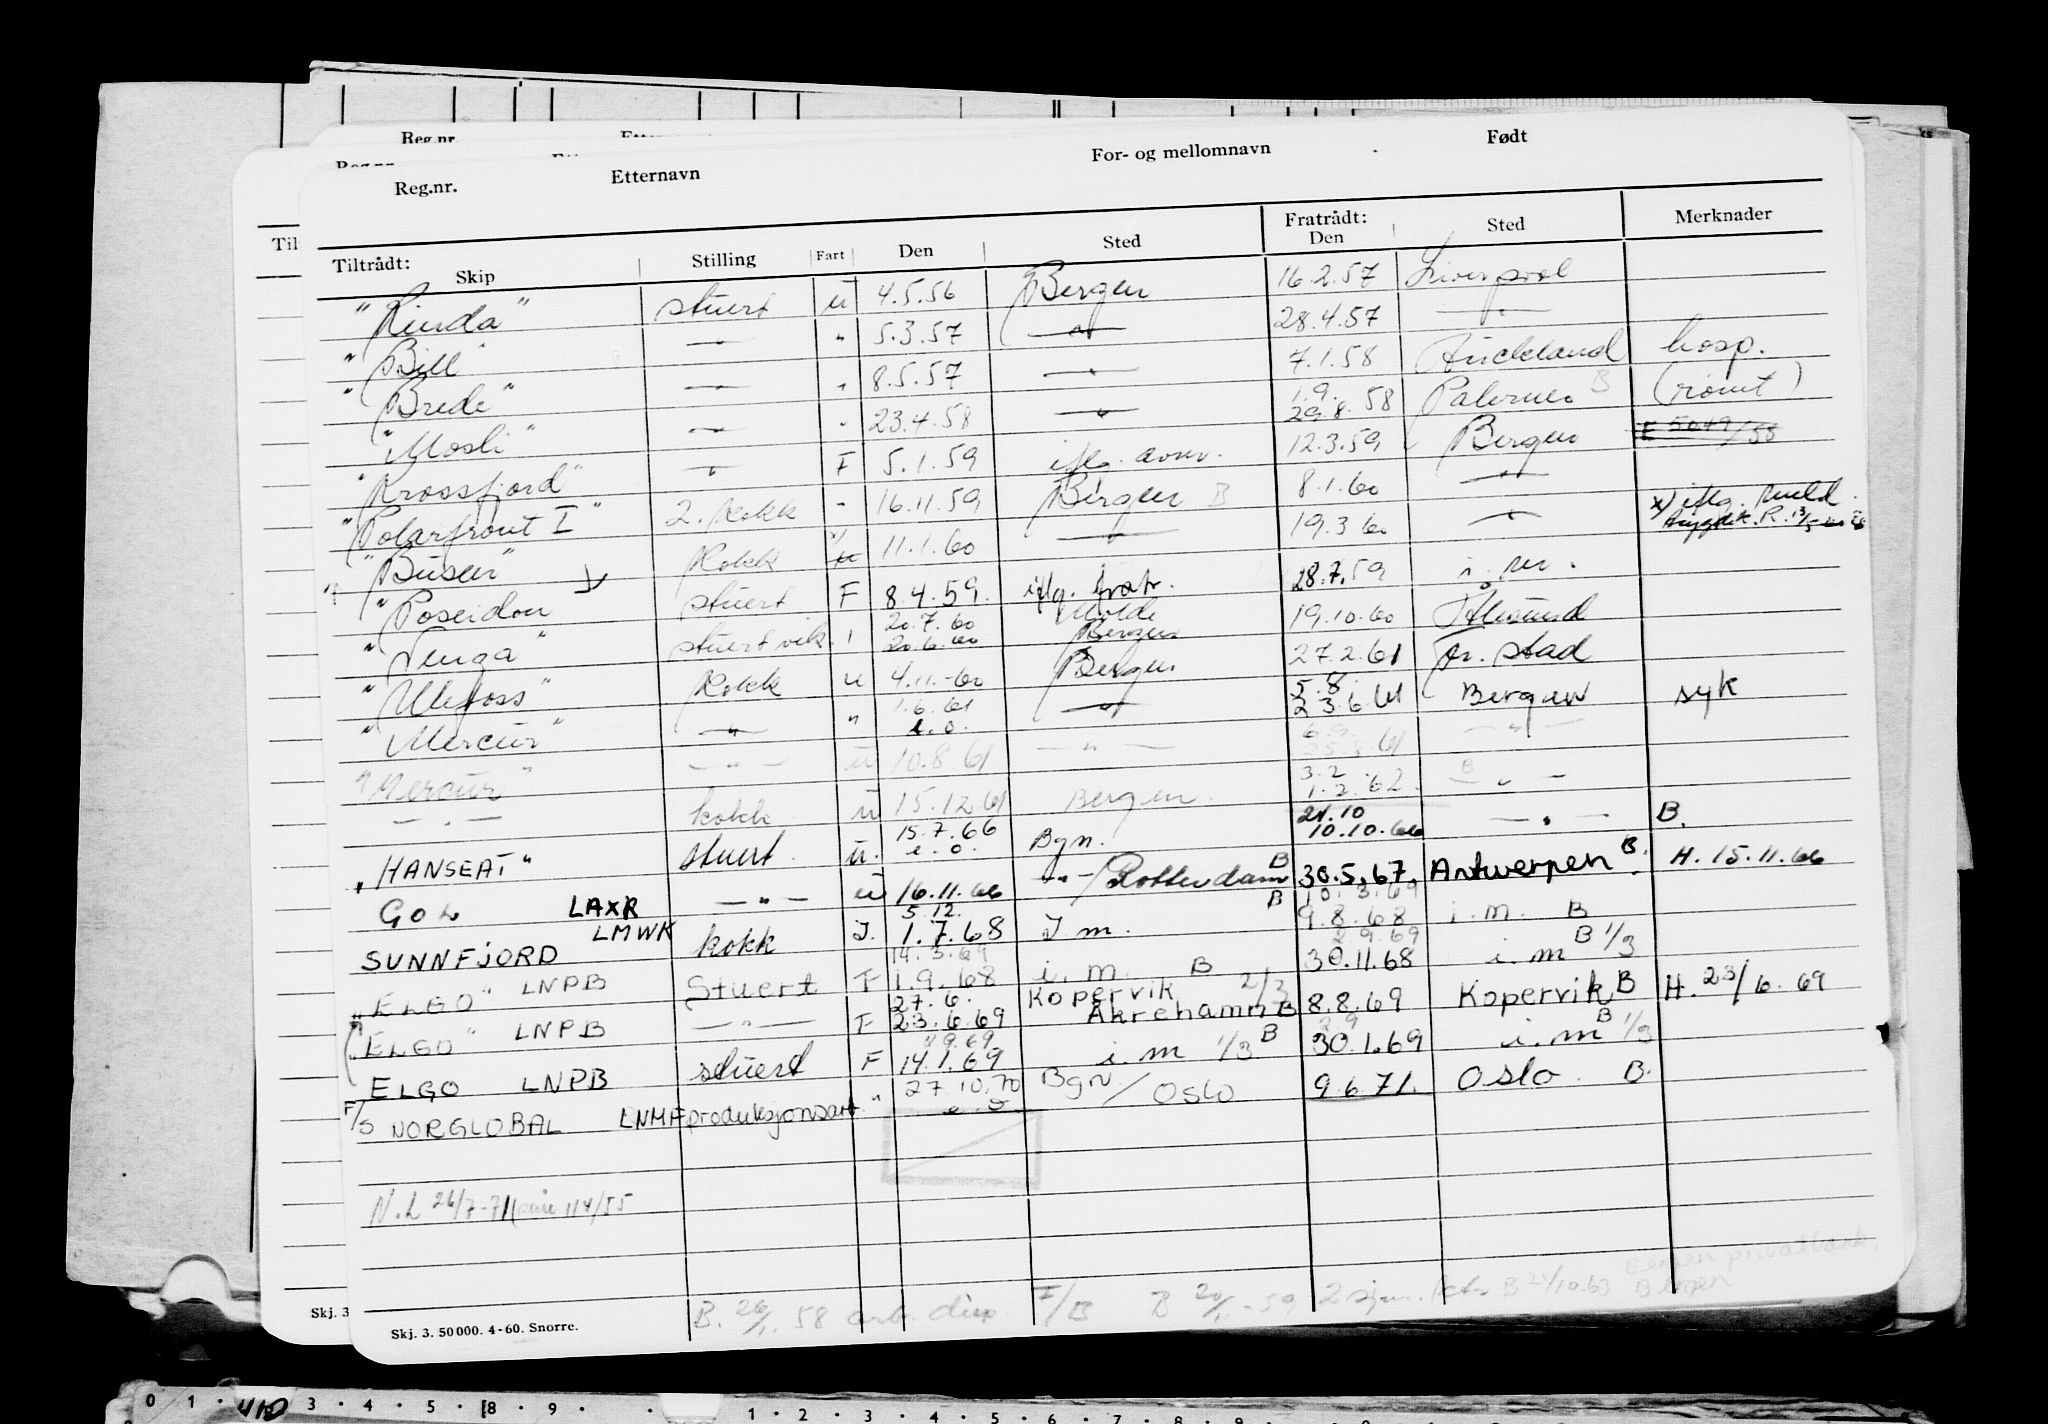 Reg.nr. Etternavn For- og mellomnavn Født
Tiltrådt: Skip Stilling Fart Den Sted Fratrådt: Den Sted Merknader
"Rinda" stuert u 4.5.56 Bergen 16.2.57 Liverpool
"Bill" — " — " 5.3.57 — " — 28.4.57 — " —
"Brede" — " — " 8.5.57 — " — 7.1.58 Auckland hosp.
"Mosli" — " — " 23.4.58 — " — 1.9. 29.8.58 Palermo B (rømt)
"Krossfjord" " F 5.1.59 iflg. avm. 12.3.59 Bergen E 5049/58
"Polarfront I" 2. kokk " 16.11.59 Bergen B 8.1.60 — " —
"Busen" Kokk 11.1.60 — " — 19.3.60 — " — x) iflg. meld.
"Poseidon" stuert F 8.4.59. iflg. fratr. 28.7.59 i. m.
"Senga" stuert vik. 20.7.60 20.6.60 Molde Bergen 19.10.60 Ålesund
"Ulefoss" Kokk u 4.11.-60 Bergen 27.2.61 Fr.stad
"Mercur" — " — " 1.6.61 e.o. — " — 5.8. 23.6.61 Bergen syk
"Mercur" — " — u 10.8.61 — " — 6.9. 25.8.61 — " —
— " — kokk u 15.12.61 Bergen. 3.2. 1.2.62. B — " —
"HANSEAT" stuert u. 15.7.66 e.o. Bgn. 21.10 10.10.66 — " — B.
GOL LAXR — " — u 16.11.66 — " — / Rotterdam B 30.5.67. Antwerpen B. H. 15.11.66
SUNNFJORD LMWK kokk I. 5.12. 1.7.68 I m. B 10.3.69 9.8.68 i. m. B
"ELGO" LNPB Stuert F 14.3.69 1.9.68 i. m. B 2/3 2.9.69 30.11.68 i. m B 1/3
"ELGO" LNPB — " — F 27.6. 23.6.69 Kopervik Åkrehamn B 8.8.69 Kopervik B H. 23/6.69
ELGO LNPB stuert F 11.9.69 14.1.69 i. m 1/3 B 2.9 30.1.69 i. m B 1/3
F/S NORGLOBAL LNMF produksjonsarb. " 27.10.70 e.o Bgn/ Oslo 9.6.71. Oslo. B.
N.L 26/7-71
B. 26/1.58 arb. disp F/B B 20/11-59 B 21/10.63 Bergen privatbank. Bergen
Skj. 3. 50 000. 4-60. Snorre.